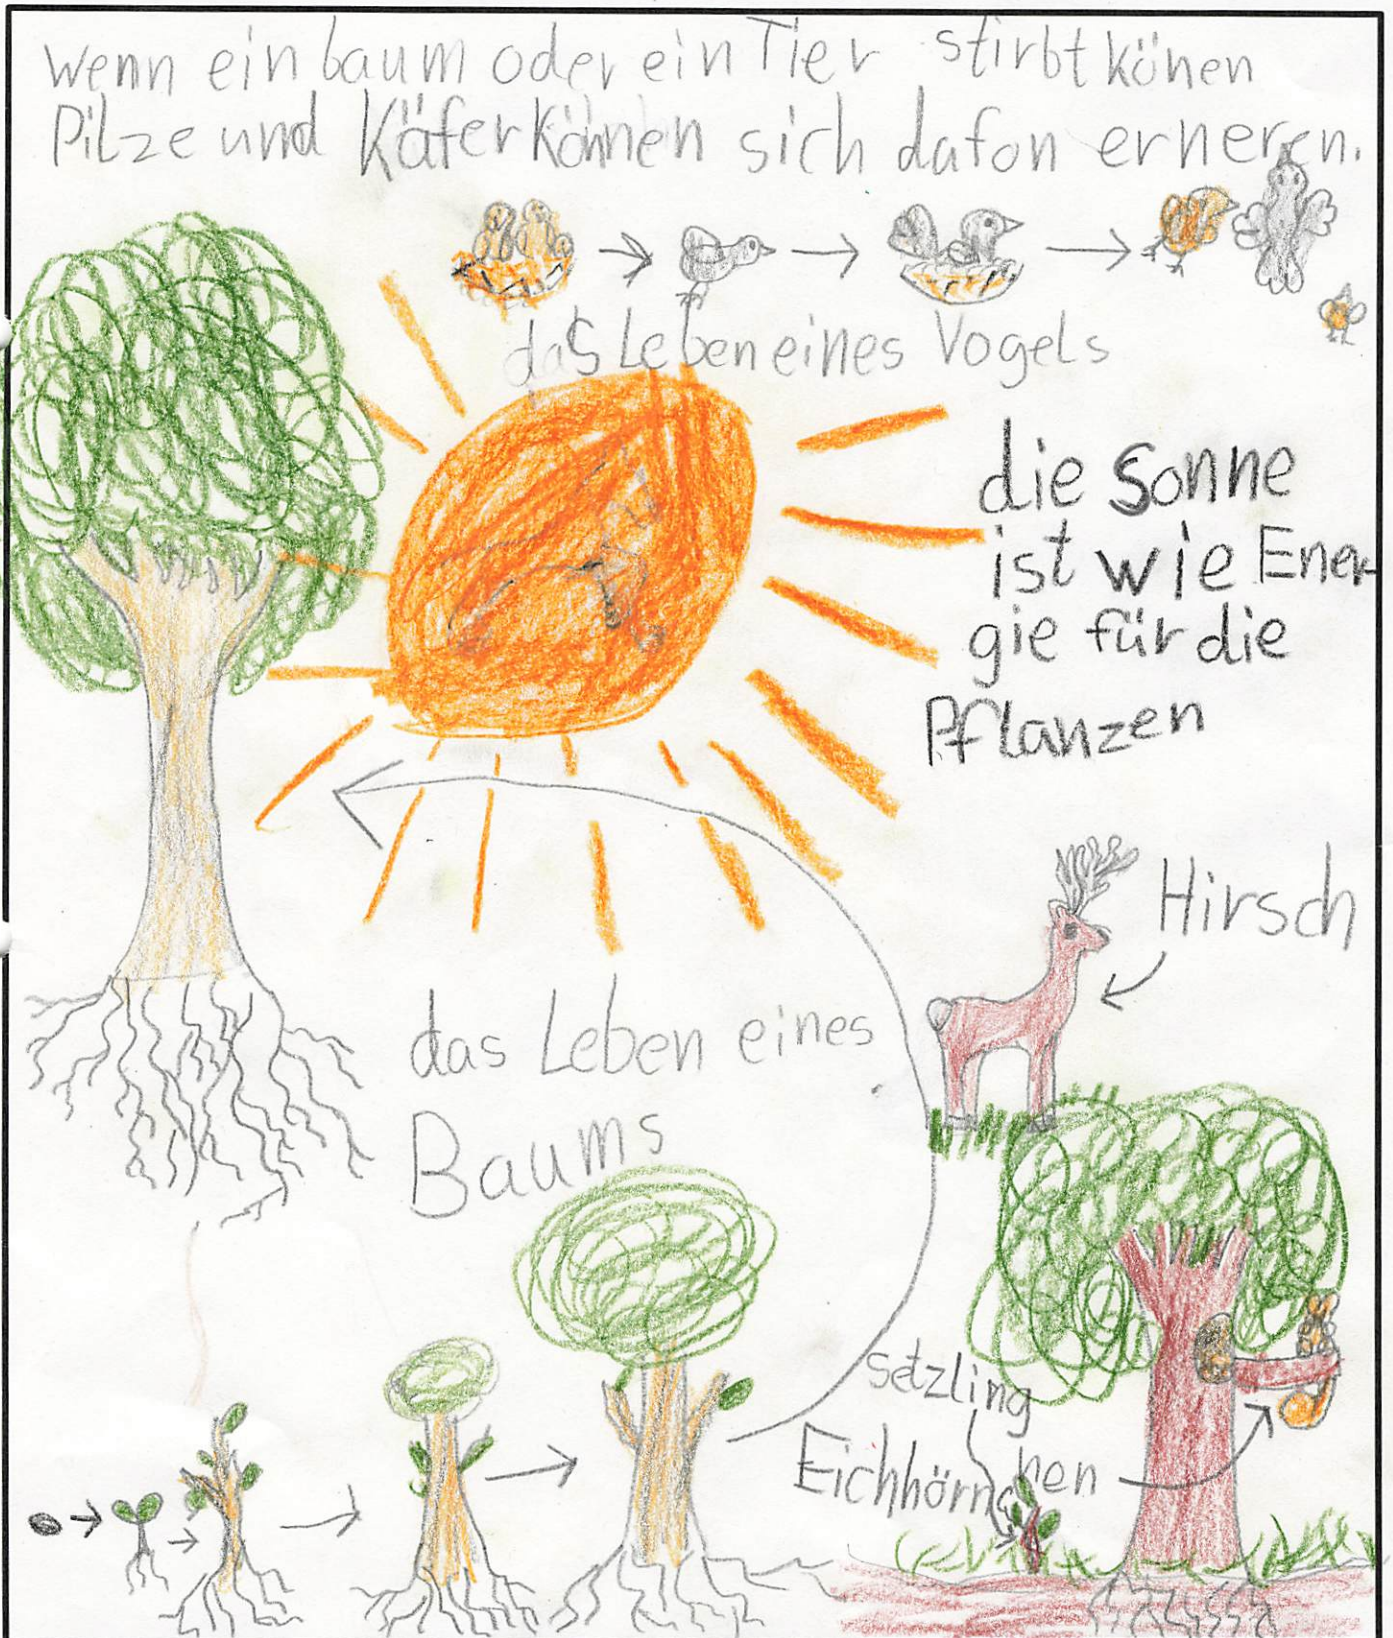 Wenn ein baum oder ein Tier stirbt könen
Pilze und Käfer können sich dafon erneren.
das Leben eines Vogels
die Sonne
ist wie Ener-
gie für die
Pflanzen
Hirsch
das Leben eines
Baums
setzling
Eichhörnchen